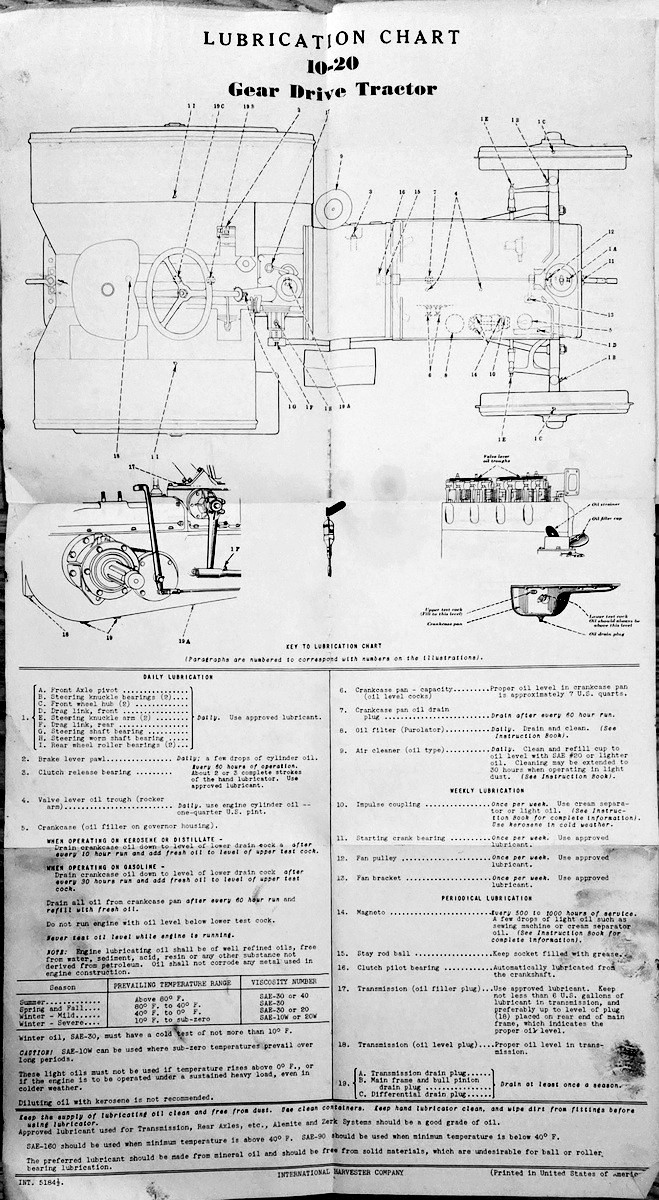 LUBRICATION CHART
10-20
Gear Drive Tractor
1I 19C 19B 2
1E 1B 1C
9 3 16 15 7 4
12
1A
11
13
5
1D
1B
6 8 14 10
1E 1C
18 1I 1G 1F 1H 19A
17
1F
18 19 19A
Valve lever
oil troughs
Oil strainer
Oil filler cap
Upper test cock
(Fill to this level)
Crankcase pan
Lower test cock
Oil should always be
above this level
Oil drain plug
KEY TO LUBRICATION CHART
(Paragraphs are numbered to correspond with numbers on the illustrations).
DAILY LUBRICATION
1. A. Front Axle pivot
B. Steering knuckle bearings (2)....
C. Front wheel hub (2)
D. Drag link, front
E. Steering knuckle arm (2) ....... Daily. Use approved lubricant.
F. Drag link, rear
G. Steering shaft bearing
H. Steering worm shaft bearing
I. Rear wheel roller bearings (2)...
2. Brake lever pawl..............Daily; a few drops of cylinder oil.
3. Clutch release bearing ........ Every 60 hours of operation.
About 2 or 3 complete strokes
of the hand lubricator. Use
approved lubricant.
4. Valve lever oil trough (rocker
arm)......................Daily. use engine cylinder oil --
one-quarter U.S. pint.
5. Crankcase (oil filler on governor housing).
WHEN OPERATING ON KEROSENE OR DISTILLATE -
Drain crankcase oil down to level of lower drain cock after
every 10 hour run and add fresh oil to level of upper test cock.
WHEN OPERATING ON GASOLINE -
Drain crankcase oil down to level of lower drain cock after
every 30 hours run and add fresh oil to level of upper test
cock.
Drain all oil from crankcase pan after every 60 hour run and
refill with fresh oil.
Do not run engine with oil level below lower test cock.
Never test oil level while engine is running.
NOTE: Engine lubricating oil shall be of well refined oils, free
from water, sediment, acid, resin or any other substance not
derived from petroleum. Oil shall not corrode any metal used in
engine construction.
Season PREVAILING TEMPERATURE RANGE VISCOSITY NUMBER
Summer........... Above 80° F. SAE-30 or 40
Spring and Fall.... 80° F. to 40° F. SAE-30
Winter - Mild..... 40° F. to 0° F. SAE-30 or 20
Winter - Severe.... 10° F. to sub-zero SAE-10W or 20W
Winter oil, SAE-30, must have a cold test of not more than 10° F.
CAUTION! SAE-10W can be used where sub-zero temperatures prevail over
long periods.
These light oils must not be used if temperature rises above 0° F., or
if the engine is to be operated under a sustained heavy load, even in
colder weather.
Diluting oil with kerosene is not recommended.
6. Crankcase pan - capacity........Proper oil level in crankcase pan
(oil level cocks) is approximately 7 U.S. quarts.
7. Crankcase pan oil drain
plug ....................Drain after every 60 hour run.
8. Oil filter (Purolator)..........Daily. Drain and clean. (See
Instruction Book).
9. Air cleaner (oil type)..........Daily. Clean and refill cup to
oil level with SAE #20 or lighter
oil. Cleaning may be extended to
30 hours when operating in light
dust. (See Instruction Book).
WEEKLY LUBRICATION
10. Impulse coupling ...............Once per week. Use cream separa-
tor or light oil. (See Instruc-
tion Book for complete information).
Use kerosene in cold weather.
11. Starting crank bearing .........Once per week. Use approved
lubricant.
12. Fan pulley .....................Once per week. Use approved
lubricant.
13. Fan bracket ....................Once per week. Use approved
lubricant.
PERIODICAL LUBRICATION
14. Magneto ........................Every 500 to 1000 hours of service.
A few drops of light oil such as
sewing machine or cream separator
oil. (See Instruction Book for
complete information).
15. Stay rod ball ..................Keep socket filled with grease.
16. Clutch pilot bearing ...........Automatically lubricated from
the crankshaft.
17. Transmission (oil filler plug)...Use approved lubricant. Keep
not less than 6 U.S. gallons of
lubricant in transmission, and
preferably up to level of plug
(18) placed on rear end of main
frame, which indicates the
proper oil level.
18. Transmission (oil level plug)....Proper oil level in trans-
mission.
19. A. Transmission drain plug.....
B. Main frame and bull pinion
drain plug ............... Drain at least once a season.
C. Differential drain plug......
Keep the supply of lubricating oil clean and free from dust. Use clean containers. Keep hand lubricator clean, and wipe dirt from fittings before
using lubricator.
Approved lubricant used for Transmission, Rear Axles, etc., Alemite and Zerk Systems should be a good grade of oil.
SAE-160 should be used when minimum temperature is above 40° F. SAE-90 should be used when minimum temperature is below 40° F.
The preferred lubricant should be made from mineral oil and should be free from solid materials, which are undesirable for ball or roller
bearing lubrication.
INT. 5184½. INTERNATIONAL HARVESTER COMPANY (Printed in United States of America